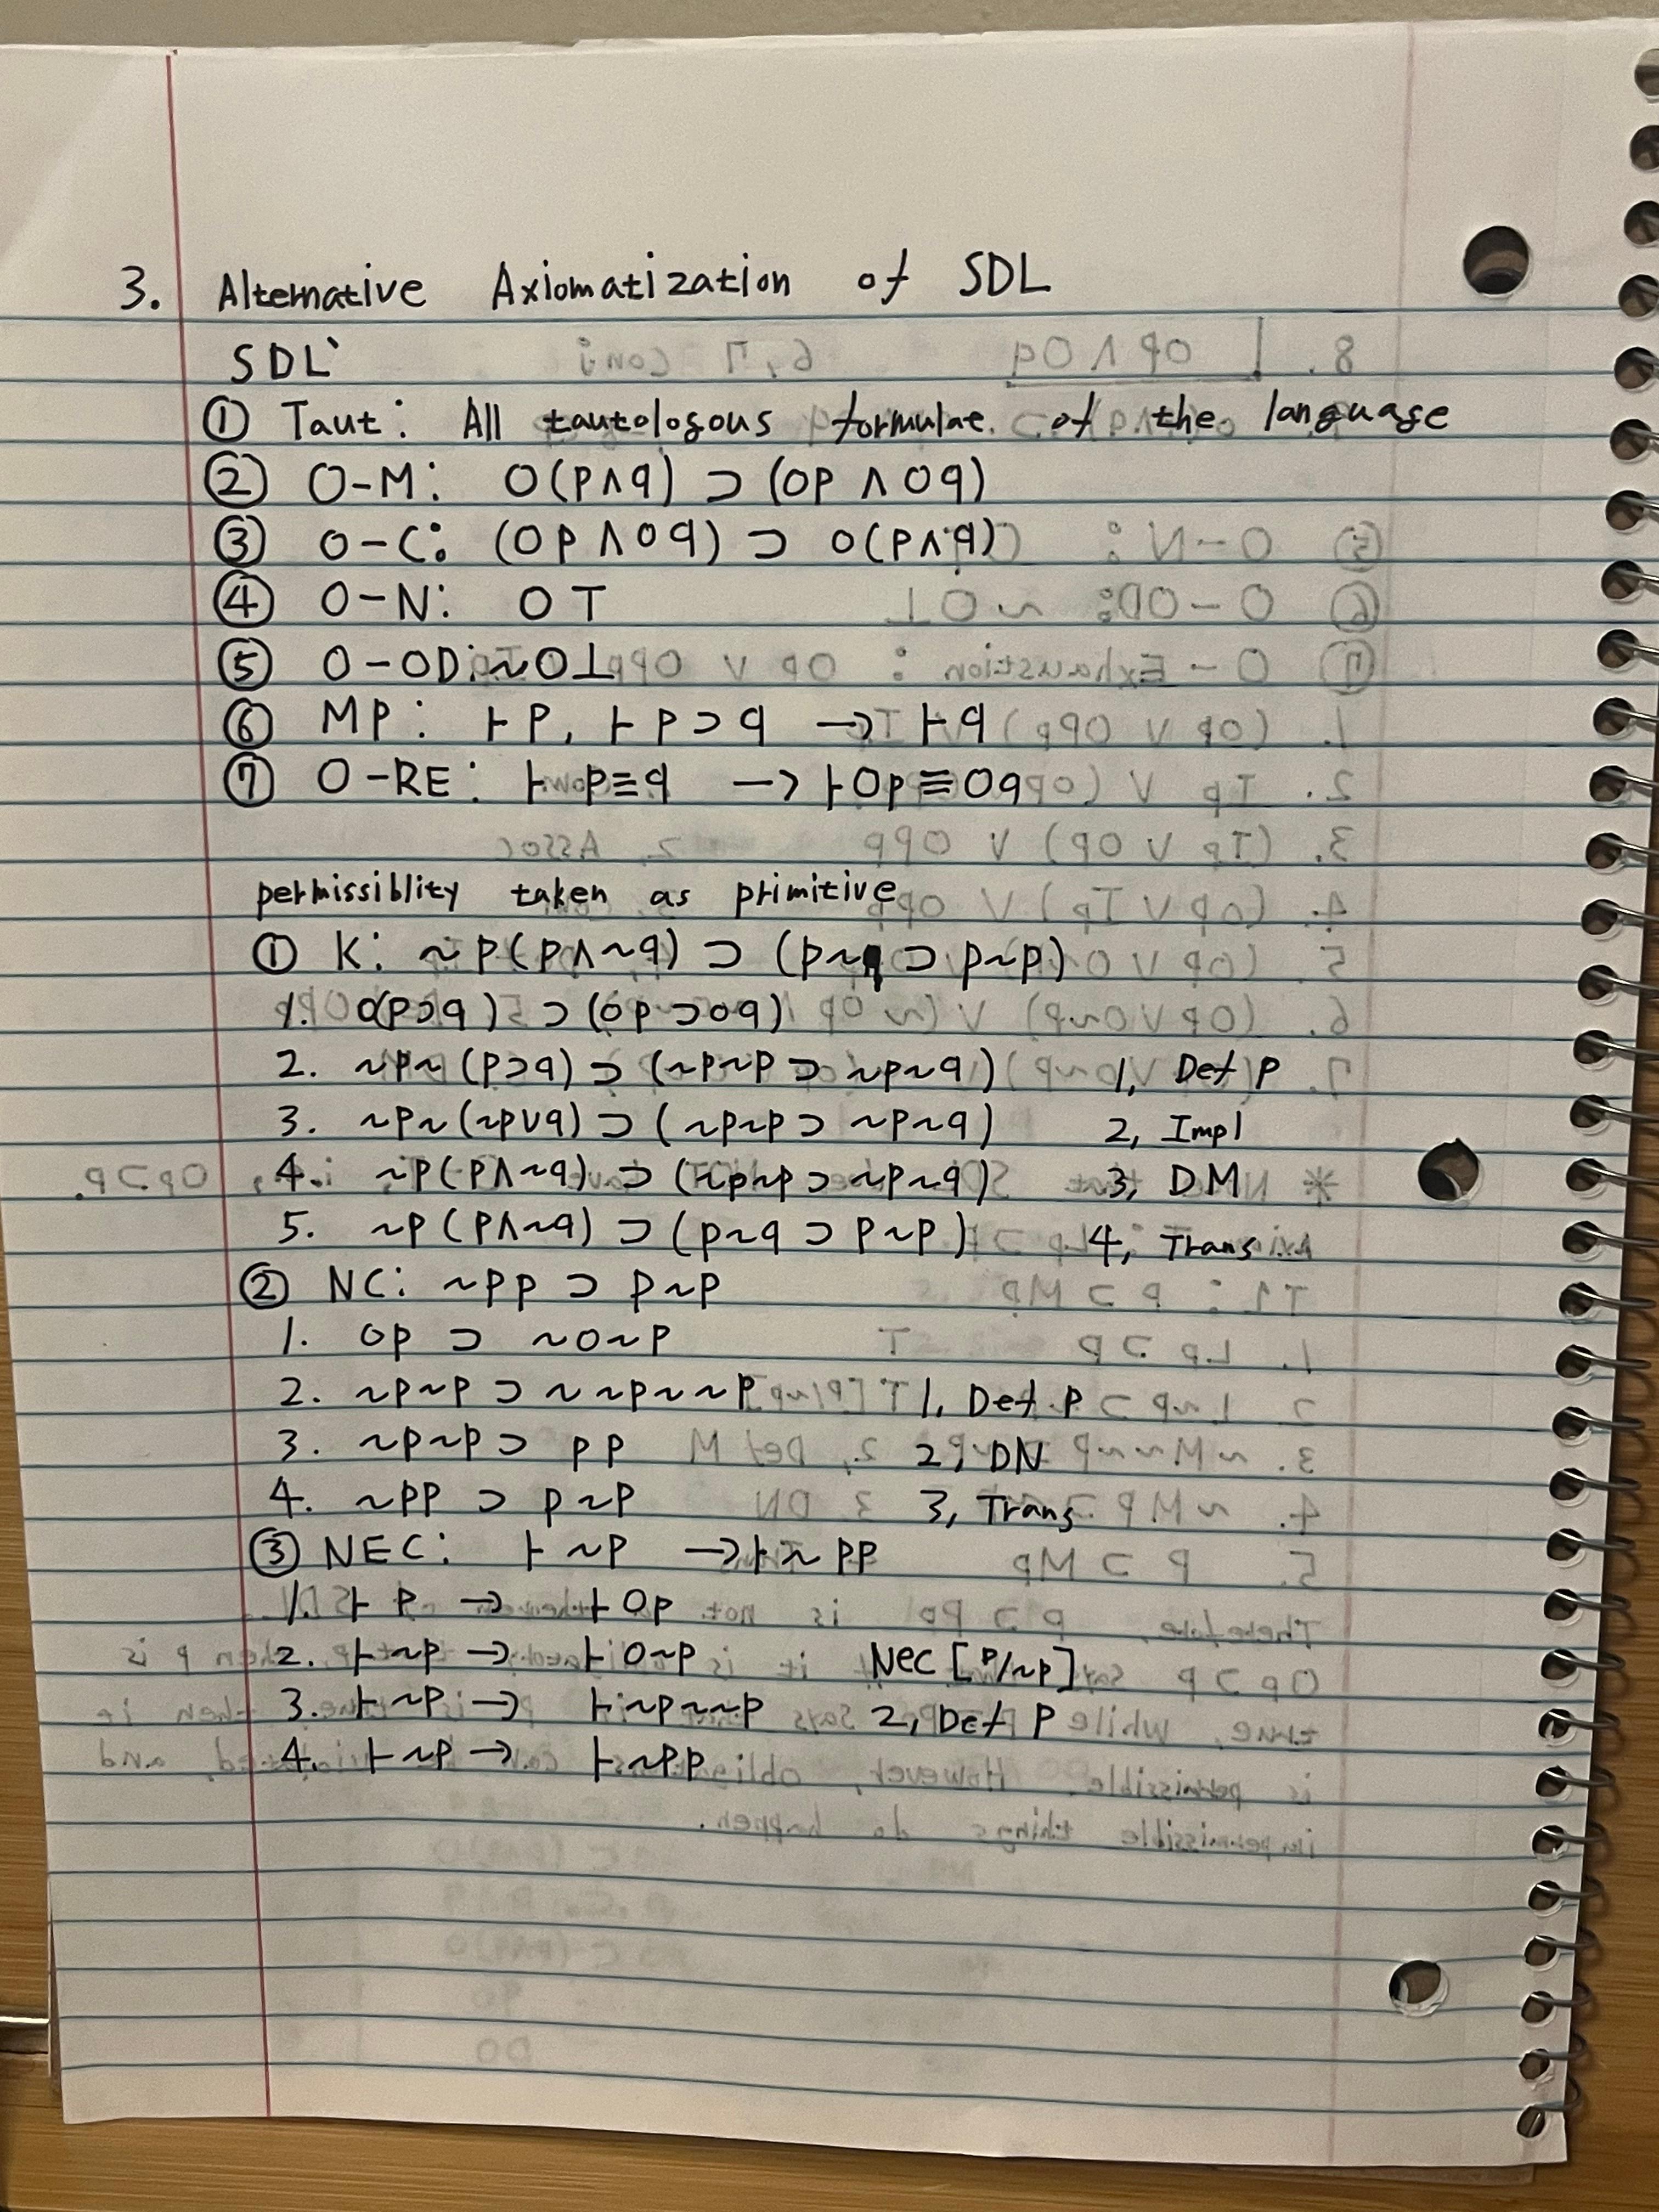 3. Alternative Axiomatization of SDL
SDL`
① Taut: All tautologous formulae of the language
② O-M: O(p∧q) ⊃ (Op ∧ Oq)
③ O-C: (Op ∧ Oq) ⊃ O(p∧q)
④ O-N: O⊤
⑤ O-OD: ~O⊥
⑥ MP: ⊢p, ⊢p⊃q → ⊢q
⑦ O-RE: ⊢p≡q → ⊢Op≡Oq
permissiblity taken as primitive
① K: ~P(p∧~q) ⊃ (P~q ⊃ P~p)
1. O(p⊃q) ⊃ (Op ⊃ Oq)
2. ~P~(p⊃q) ⊃ (~P~p ⊃ ~P~q) 1, Def P
3. ~P~(~p∨q) ⊃ (~P~p ⊃ ~P~q) 2, Impl
4. ~P(p∧~q) ⊃ (~P~p ⊃ ~P~q) 3, DM
5. ~P(p∧~q) ⊃ (P~q ⊃ P~p) 4, Trans
② NC: ~Pp ⊃ P~p
1. Op ⊃ ~O~p
2. ~P~p ⊃ ~~P~~p 1, Def P
3. ~P~p ⊃ Pp 2, DN
4. ~Pp ⊃ P~p 3, Trans
③ NEC: ⊢~p → ⊢~Pp
1. ⊢p → ⊢Op
2. ⊢~p → ⊢O~p Nec [p/~p]
3. ⊢~p → ⊢~P~~p 2, Def P
4. ⊢~p → ⊢~Pp